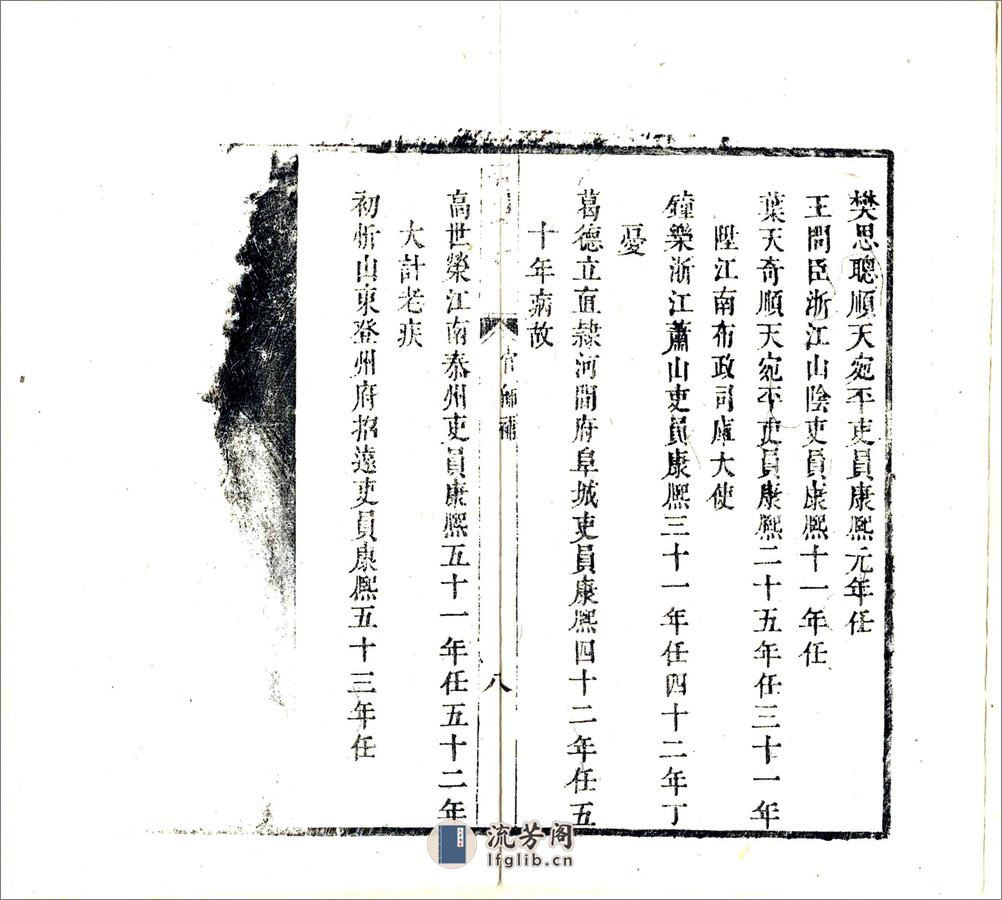 樊思聰順天宛平吏員康熙元年任
王問臣浙江山陰吏員康熙十一年任
葉天奇順天宛平吏員康熙二十五年任三十一年
陞江南布政司庫大使
鐘樂浙江蕭山吏員康熙三十一年任四十二年丁
憂
葛德立直隸河間府阜城吏員康熙四十二年任五
十年病故
官師補
八
高世榮江南泰州吏員康熙五十一年任五十二年
大計老疾
初忻山東登州府招遠吏員康熙五十三年任
流芳阁
lfglib.cn